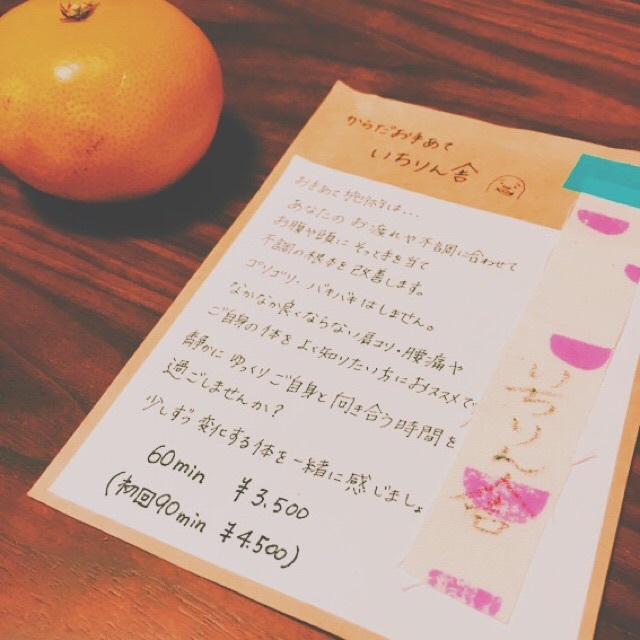 からだお手あて
いちりん舎
おまあて施術は...
あなたのお疲れや不調に合わせて
お腹や頭にそっと手を当て
不調の根本を改善します。
ゴリゴリ・バキバキはしません。
なかなか良くならない肩コリ・腰痛や
ご自身の体をよく知りたい方におススメで
静かにゆっくりご自身と向き合う時間を
過ごしませんか?
少しずつ変化する体を一緒に感じましょ
60min ¥3.500
(初回90min ¥4.500)
いちりん舎